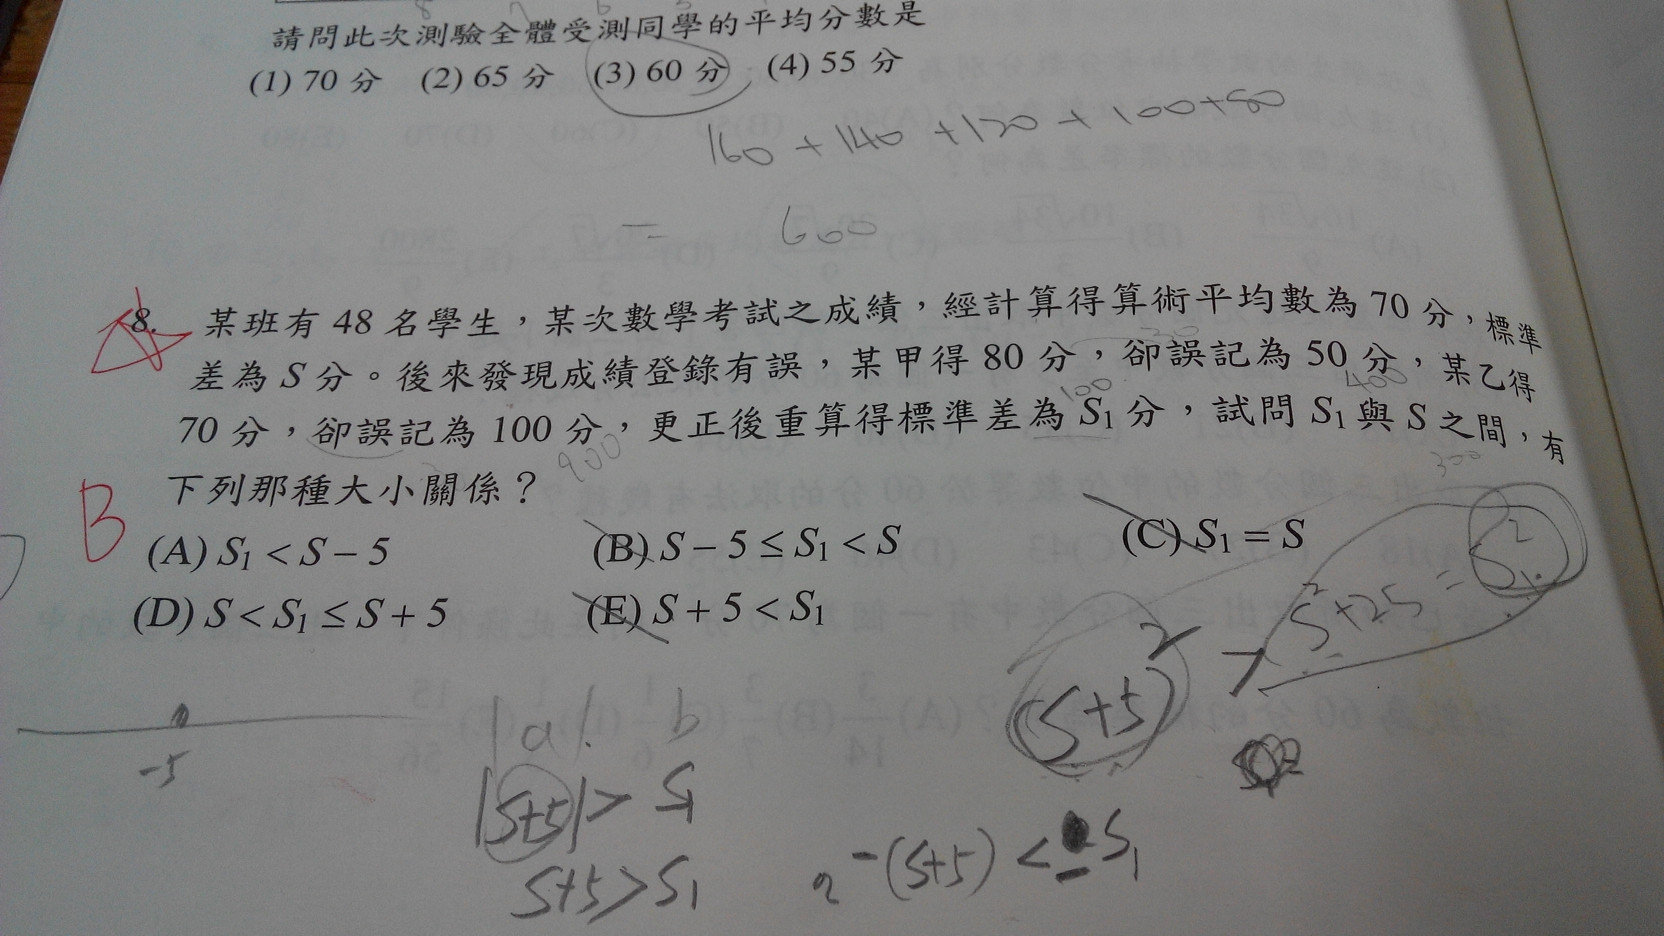 請問此次測驗全體受測同學的平均分數是
(1) 70 分 (2) 65 分 (3) 60 分 (4) 55 分
160 + 140 + 120 + 100 + 80
= 660
8. 某班有 48 名學生，某次數學考試之成績，經計算得算術平均數為 70 分，標準
差為 S 分。後來發現成績登錄有誤，某甲得 80 分，卻誤記為 50 分，某乙得
400
70 分，卻誤記為 100 分，更正後重算得標準差為 S₁ 分，試問 S₁ 與 S 之間，有
100
900
300
下列那種大小關係？
B
(A) S₁ < S − 5 (B) S − 5 ≤ S₁ < S (C) S₁ = S
(D) S < S₁ ≤ S + 5 (E) S + 5 < S₁
S² + 25 = S₁²
(S+5)² >
-5
|a| b
|S+5| > S₁
S+5 > S₁
-(S+5) < S₁